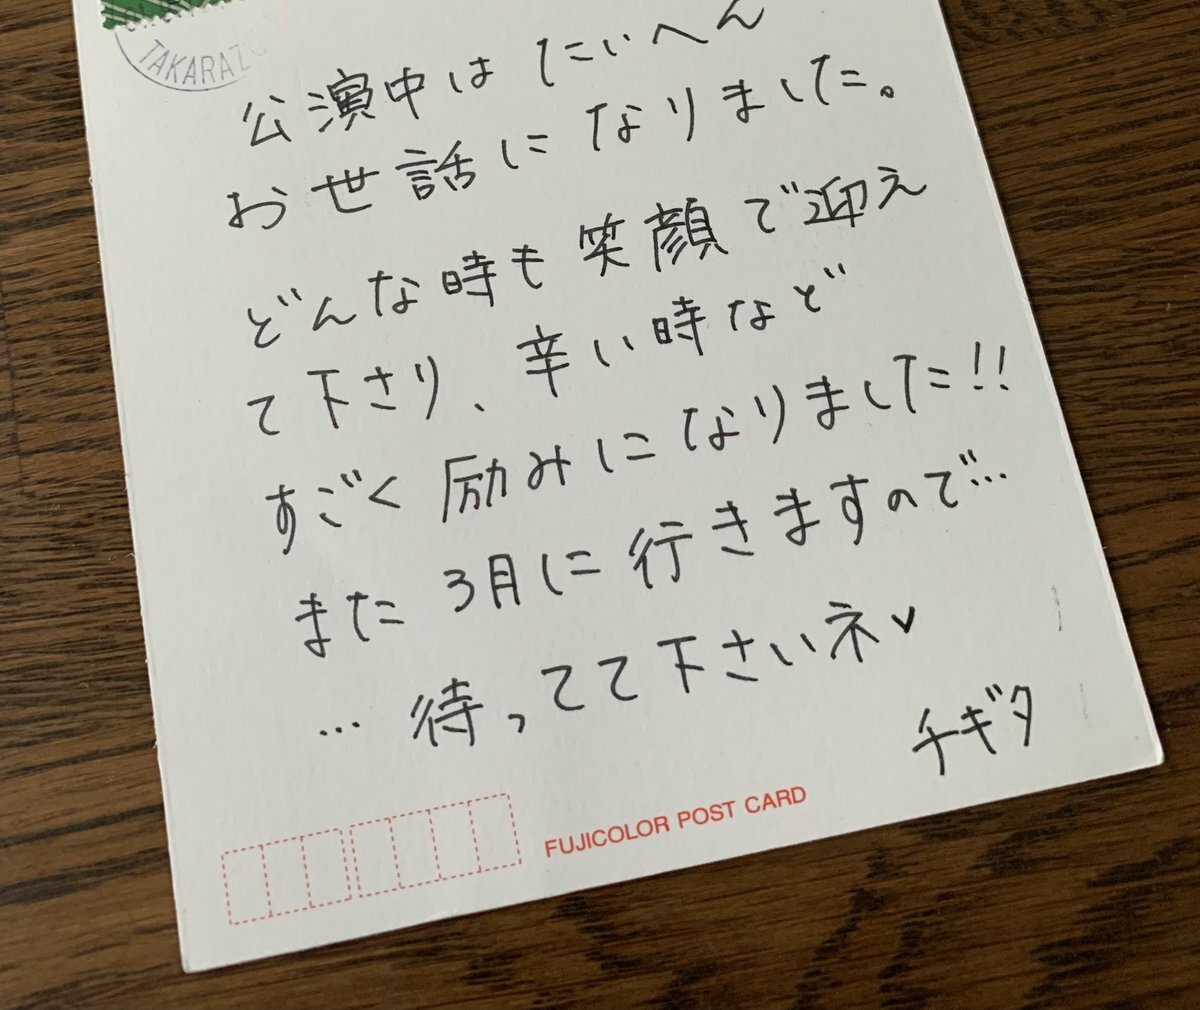 TAKARAZ
公演中は たいへん
お世話に なりました。
どんな時も 笑顔で迎え
て下さり、辛い時など
すごく励みになりました!!
また 3月に行きますので…
… 待ってて下さいネ♥
チギタ
FUJICOLOR POST CARD